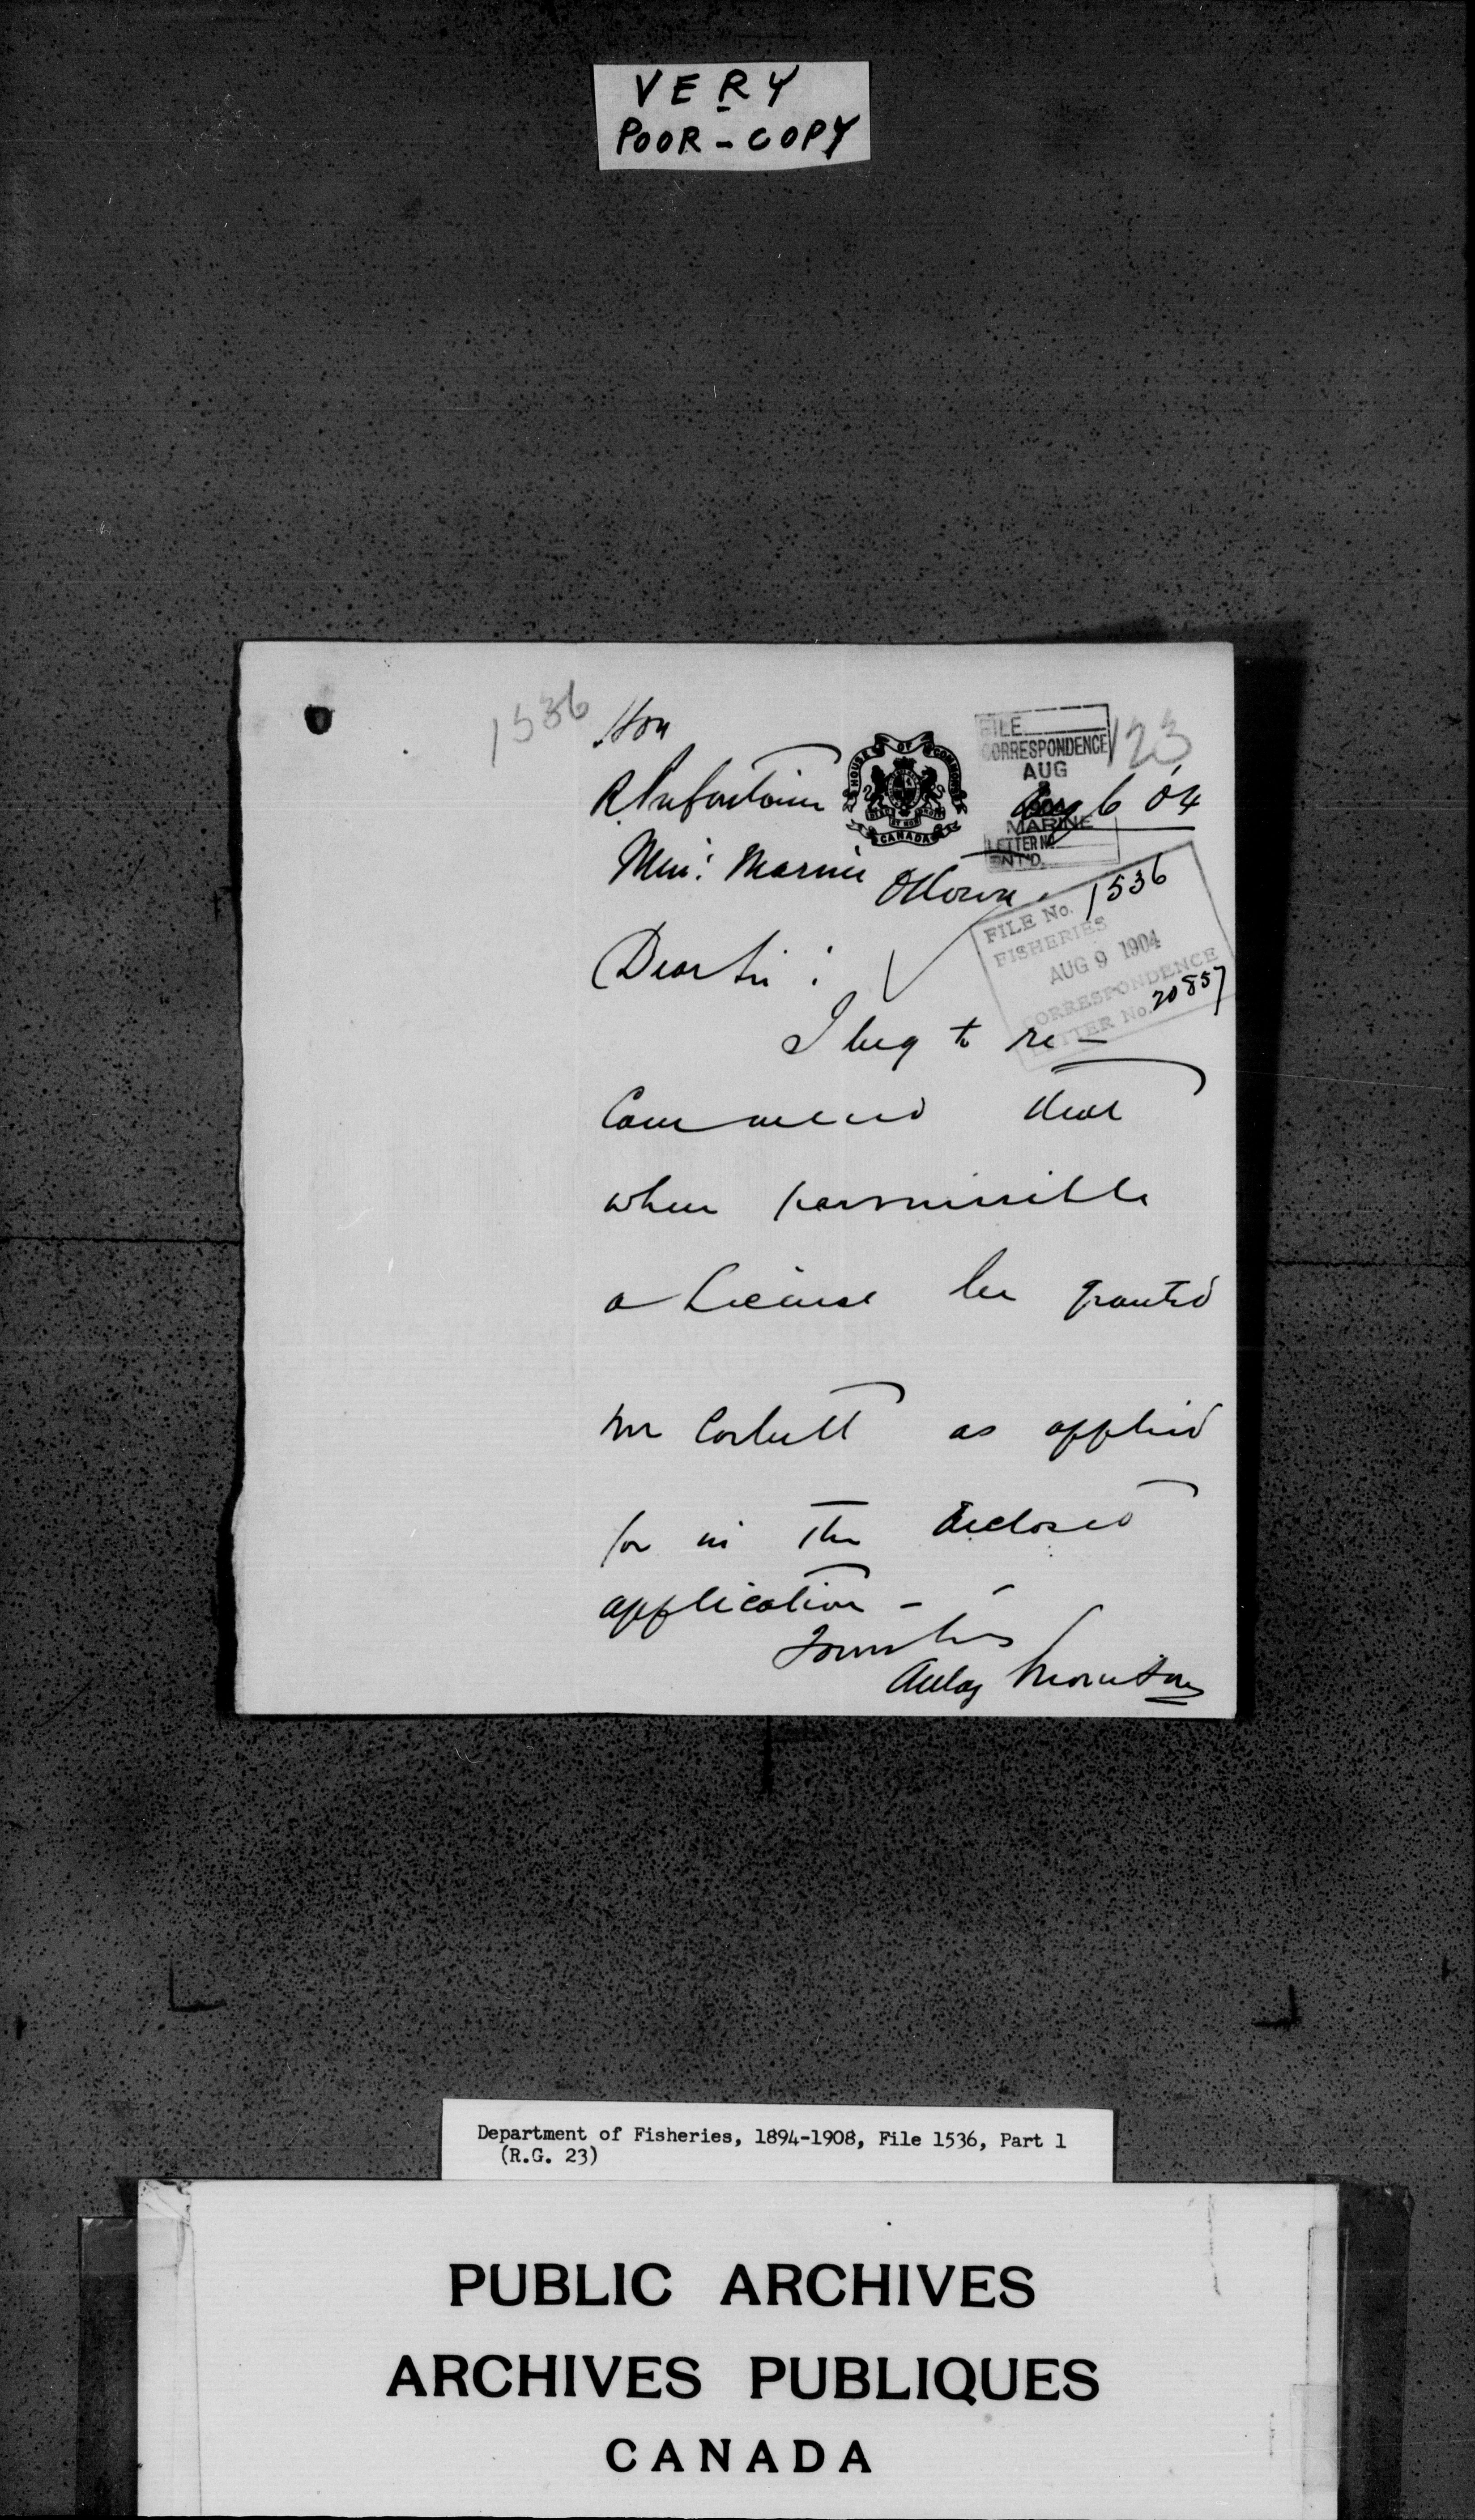 VERY
POOR - COPY
1536
Hon
R Prefontaine
HOUSE OF COMMONS
CANADA
FILE
CORRESPONDENCE
AUG
1904
MARINE
LETTER No.
ENT'D.
123
Aug 6 '04
Min: Marine
Ottawa
FILE No. 1536
FISHERIES
AUG 9 1904
CORRESPONDENCE
LETTER No. 20857
Dear Sir:
I beg to re-
commend that
when permissible
a License be granted
Mr Corbett as applied
for in the enclosed
application -
Yours truly
Aulay Morrison
Department of Fisheries, 1894-1908, File 1536, Part 1
(R.G. 23)
PUBLIC ARCHIVES
ARCHIVES PUBLIQUES
CANADA